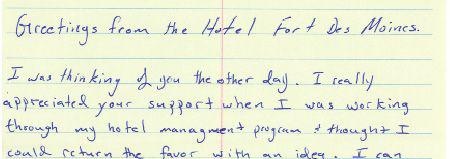 Greetings from the Hotel Fort Des Moines.
I was thinking of you the other day. I really
appreciated your support when I was working
through my hotel managment program & thought I
could return the favor with an idea. I can